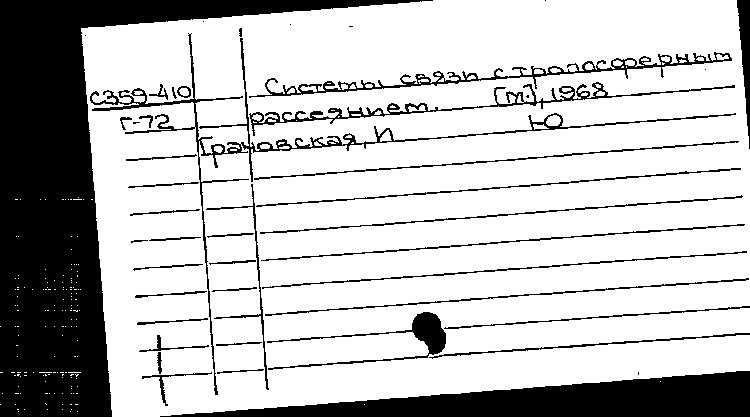 Системы связи с тропосферным
С359-410
рассеянием. [м.], 1968
Г-72
Грановская, И Ю